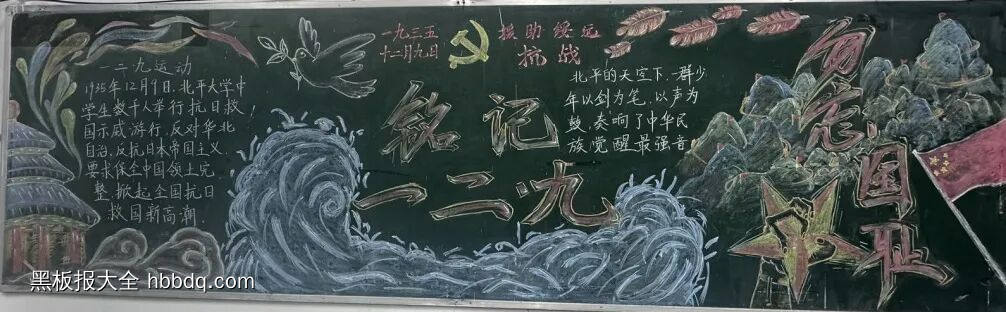 一二九运动
1935年12月9日、北平大学中
学生数千人举行抗日救
国示威游行、反对华北
自治、反抗日本帝国主义、
要求保全中国领土完
整、掀起全国抗日
救国新高潮
一九三五
十二月九日
援助绥远
抗战
铭记
一二·九
北平的天空下、一群少
年以剑为笔、以声为
鼓、奏响了中华民
族觉醒最强音
勿忘国耻
黑板报大全 hbbdq.com